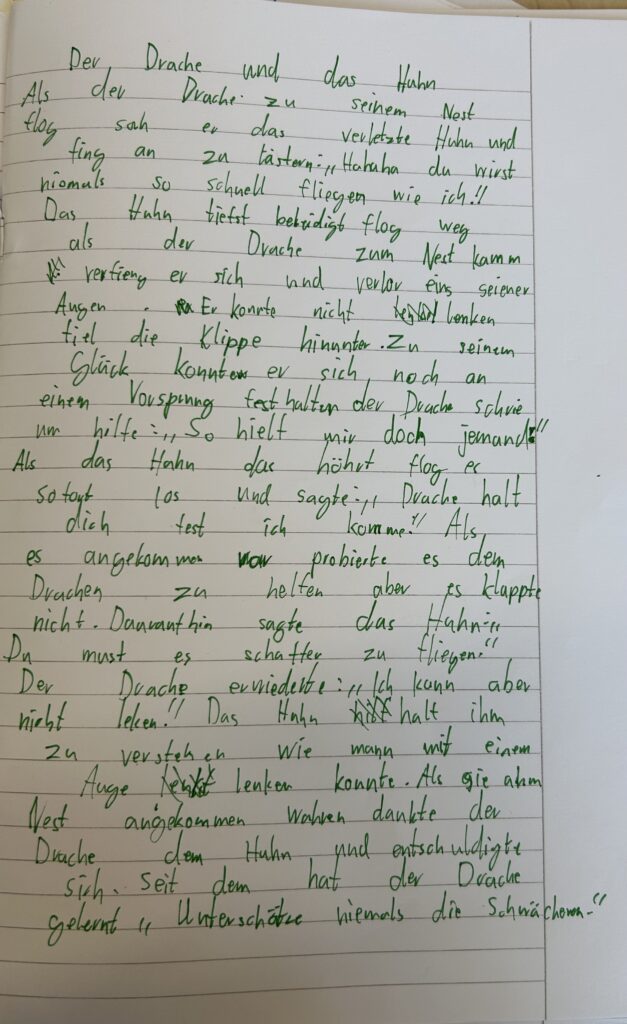 Der Drache und das Huhn
Als der Drache zu seinem Nest
flog sah er das verletzte Huhn und
fing an zu lästern:„Hahaha du wirst
niemals so schnell fliegen wie ich!"
Das Huhn tiefst beleidigt flog weg
als der Drache zum Nest kamm
verfieng er sich und verlor eins seiener
Augen. Er konnte nicht lenken
fiel die Klippe hinunter. Zu seinem
Glück konnte er sich noch an
einem Vorsprung festhalten der Drache schrie
um hilfe:„So hielf mir doch jemand!"
Als das Hahn das höhrt flog er
sofort los und sagte:„Drache halt
dich fest ich komme!" Als
es angekommen war probierte es dem
Drachen zu helfen aber es klappte
nicht. Daurauf hin sagte das Huhn:„
Du must es schaffen zu fliegen."
Der Drache erwiederte:„Ich kann aber
nicht leken!" Das Huhn halt ihm
zu verstehen wie mann mit einem
Auge lenken konnte. Als sie ahm
Nest angekommen wahren dankte der
Drache dem Huhn und entschuldigte
sich. Seit dem hat der Drache
gelernt „Unterschätze niemals die Schwächeren."